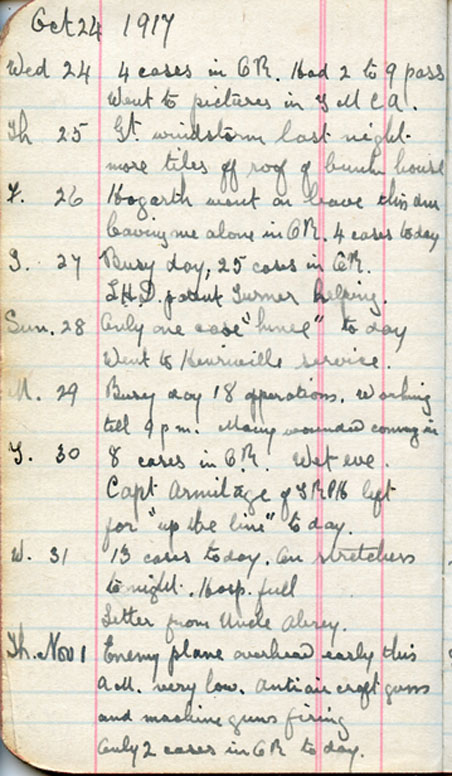 Oct 24 1917
Wed 24 4 cases in OR. Had 2 to 9 pass
Went to pictures in YMCA.
Th 25 Gt. windstorm last night.
more tiles off roof of bunk house
F. 26 Hogarth went on leave this
leaving me alone in OR. 4 cases today
S. 27 Busy day, 25 cases in OR.
Turner helping.
Sun. 28 Only one case "knee" to day
Went to Henriville service.
M. 29 Busy day 18 operations. Working
till 9 p m. Many wounded coming in
T. 30 8 cases in OR. Wet eve.
Capt Armitage of left
for "up the line" to day.
W. 31 13 cases today. On stretchers
tonight. Hosp. full
Letter from Uncle
Th. Nov 1 Enemy plane overhead early this
A.M. very low. Antiaircraft guns
and machine guns firing
Only 2 cases in OR to day.